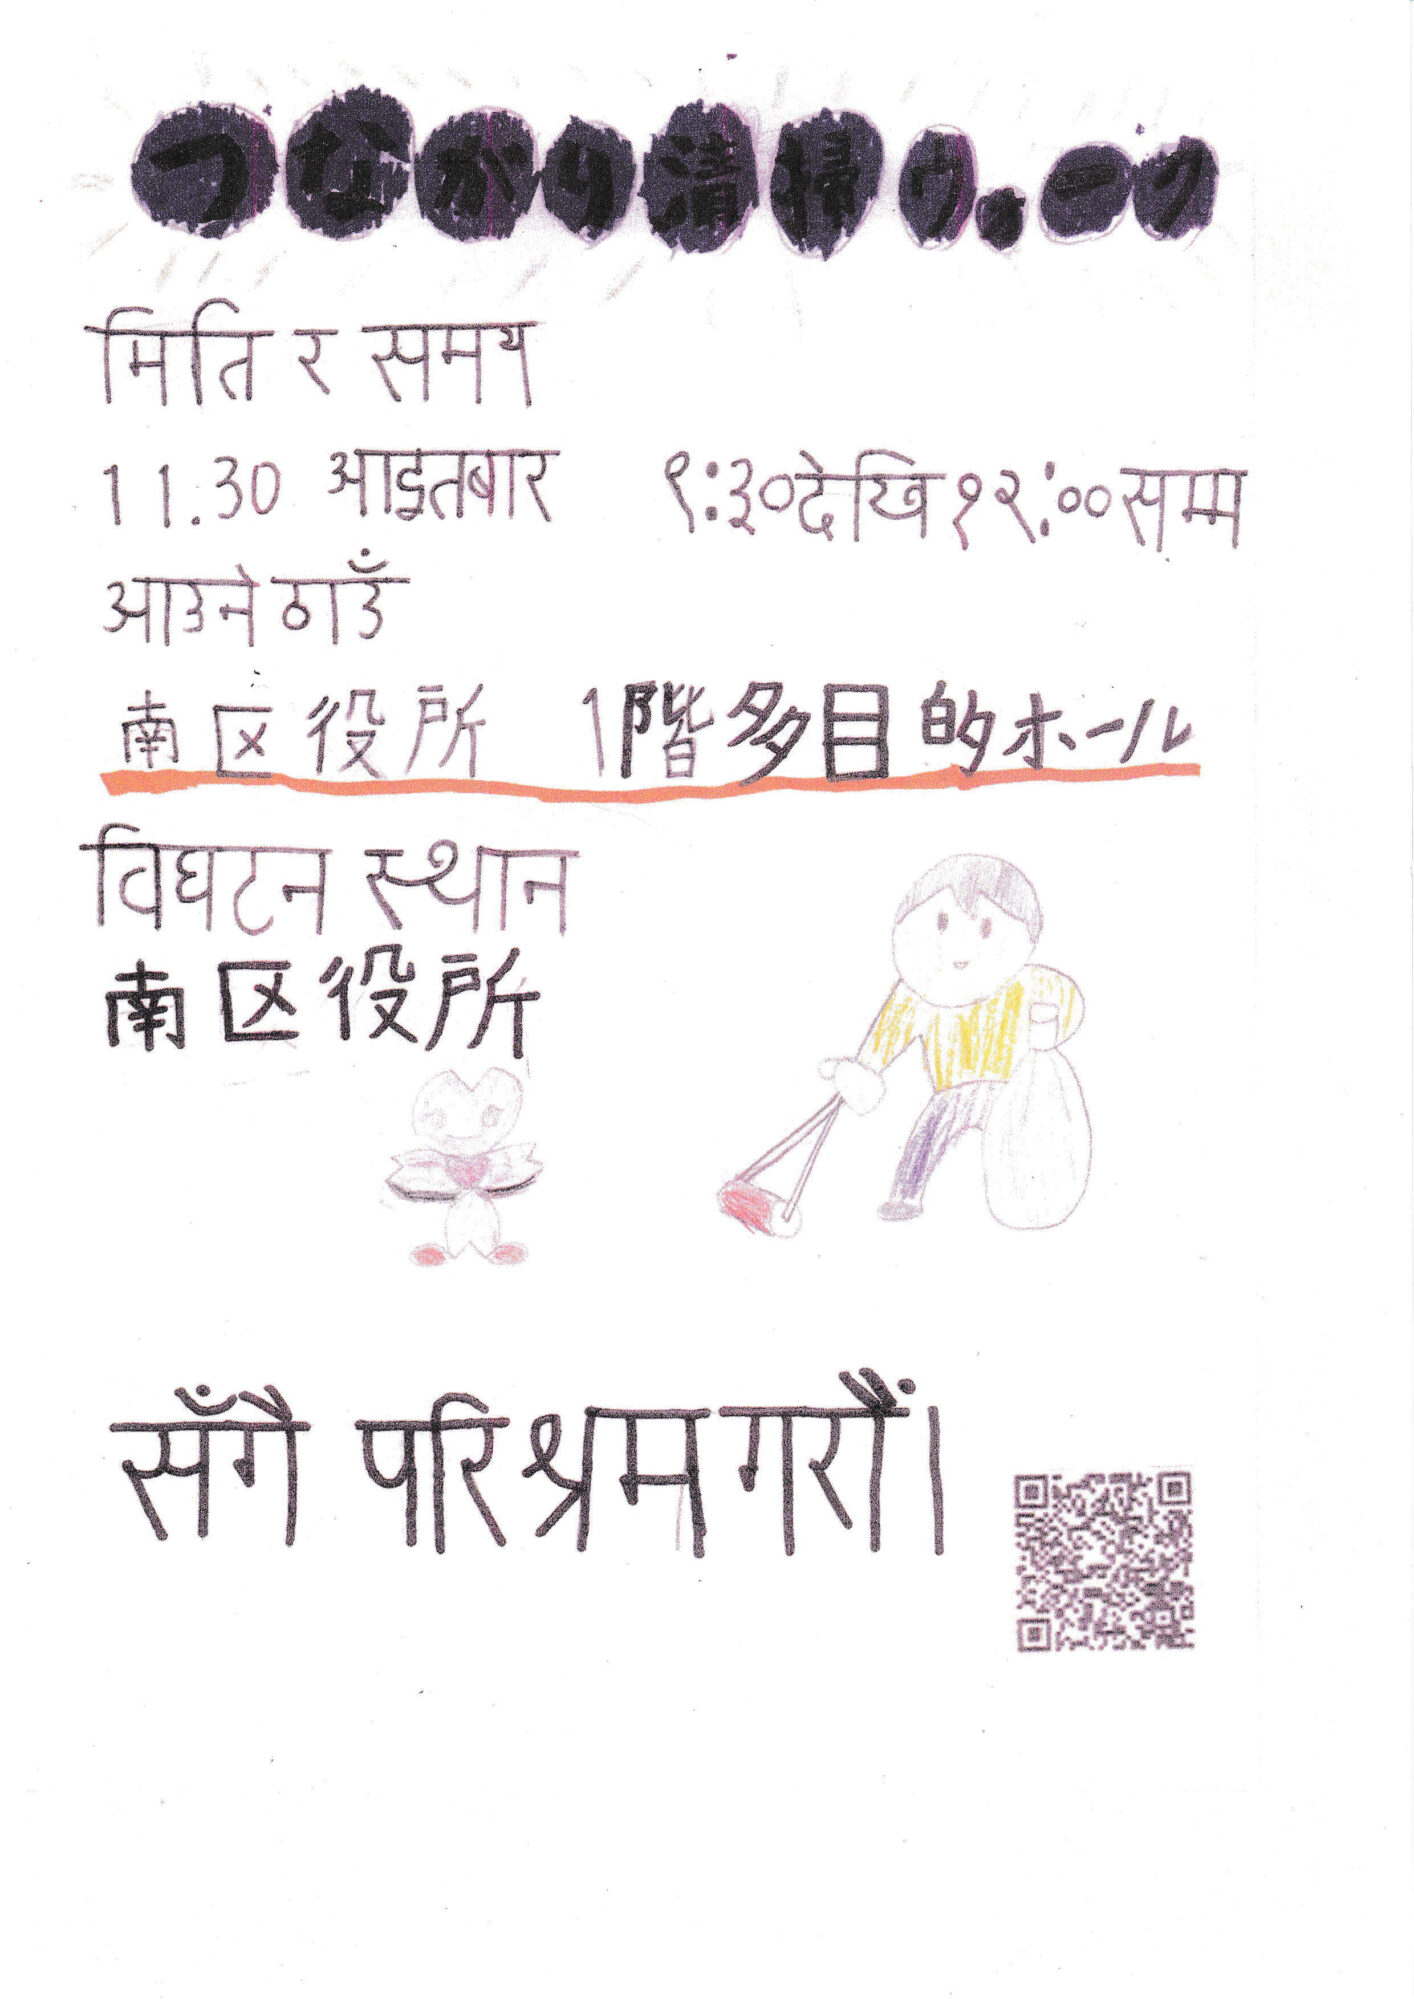 つながり清掃ウォーク
मिति र समय
11.30 आइतबार ९:३०देखि१२:००सम्म
आउने ठाउँ
南区役所 1階多目的ホール
विघटन स्थान
南区役所
सँगै परिश्रम गरौं।